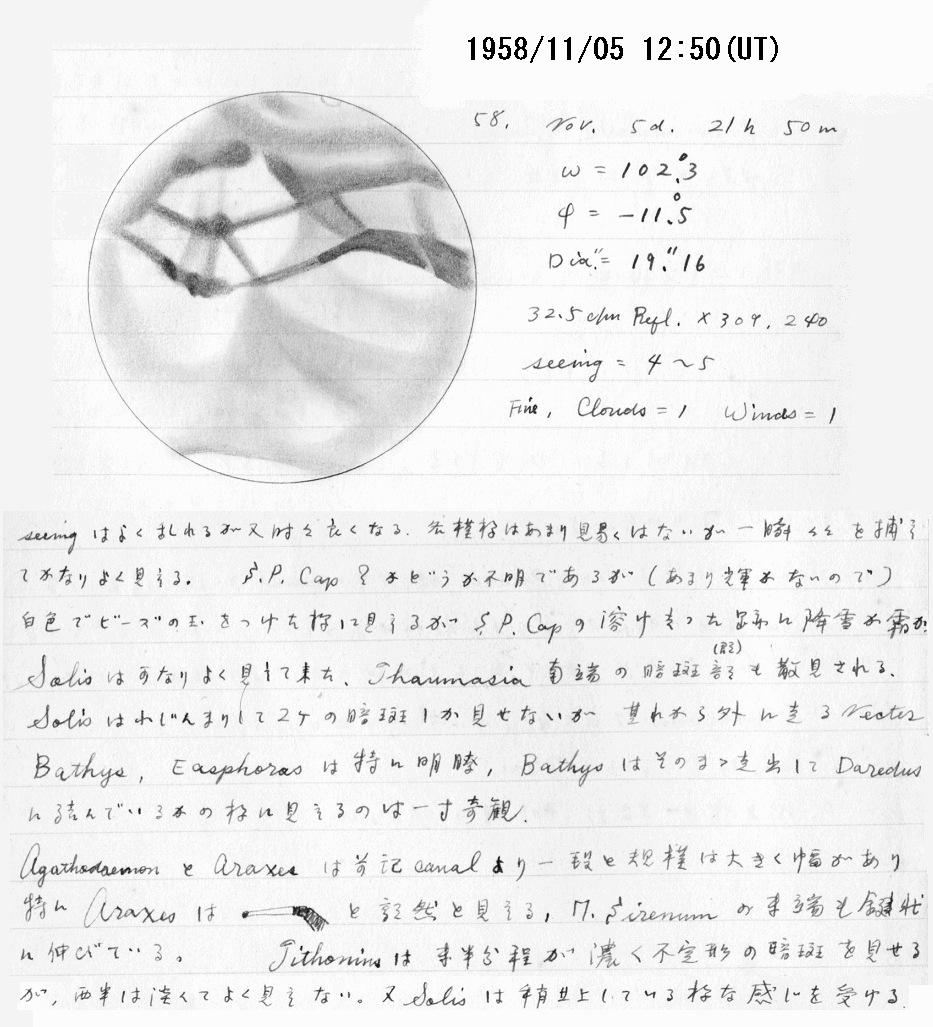 1958/11/05 12:50(UT)
58. Nov. 5d. 21h 50m
ω = 102°.3
φ = -11°.5
Dia. = 19."16
32.5cm Refl. × 309, 240
seeing = 4~5
Fine, Clouds = 1 Winds = 1
seeing はよく乱れるが又時々良くなる。 模様はあまり見易くはないが一瞬々々を捕え
てかなりよく見える。 S.P. Cap かどうか不明であるが(あまり輝かないので)
白色でビーズの玉をつけた様に見えるが S.P. Cap の溶け去った跡に降雪か霜か
Solis は可なりよく見えて来た、 Thaumasia 南端の暗斑部も散見される。
Solis は 2ケの暗斑しか見せないが 其れから外に走る Necter
Bathys, Eosphoras は特に明瞭, Bathys はそのまゝ走出して Daredus
に結んでいるかの様に見えるのは一寸奇観。
Agathodaemon と Araxes は前記 canal より一段と規模は大きく幅があり
特に Araxes は と記然と見える, M. Sirenum の東端も鍵状
に伸びている。 Tithonius は東半分程が濃く不定形の暗斑を見せる
が, 西半は淡くてよく見えない。又 Solis は稍 上している様な感じを受ける。